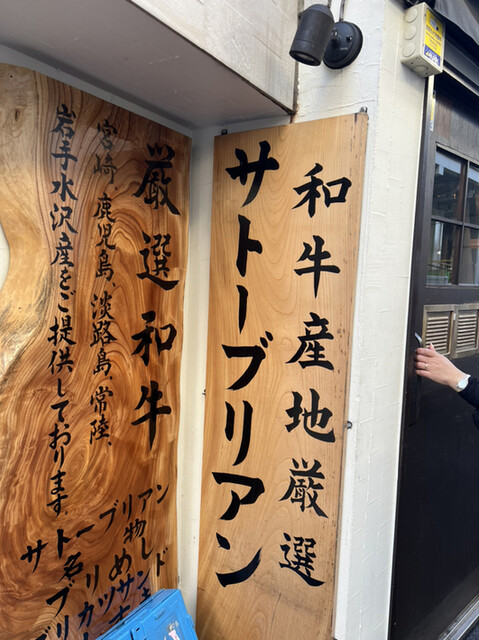 和牛産地厳選
サトーブリアン
厳選和牛
宮崎、鹿児島、淡路島、常陸、
岩手水沢産をご提供しております
サトーブリアン
名物
ブリめし
ブリカツサンド